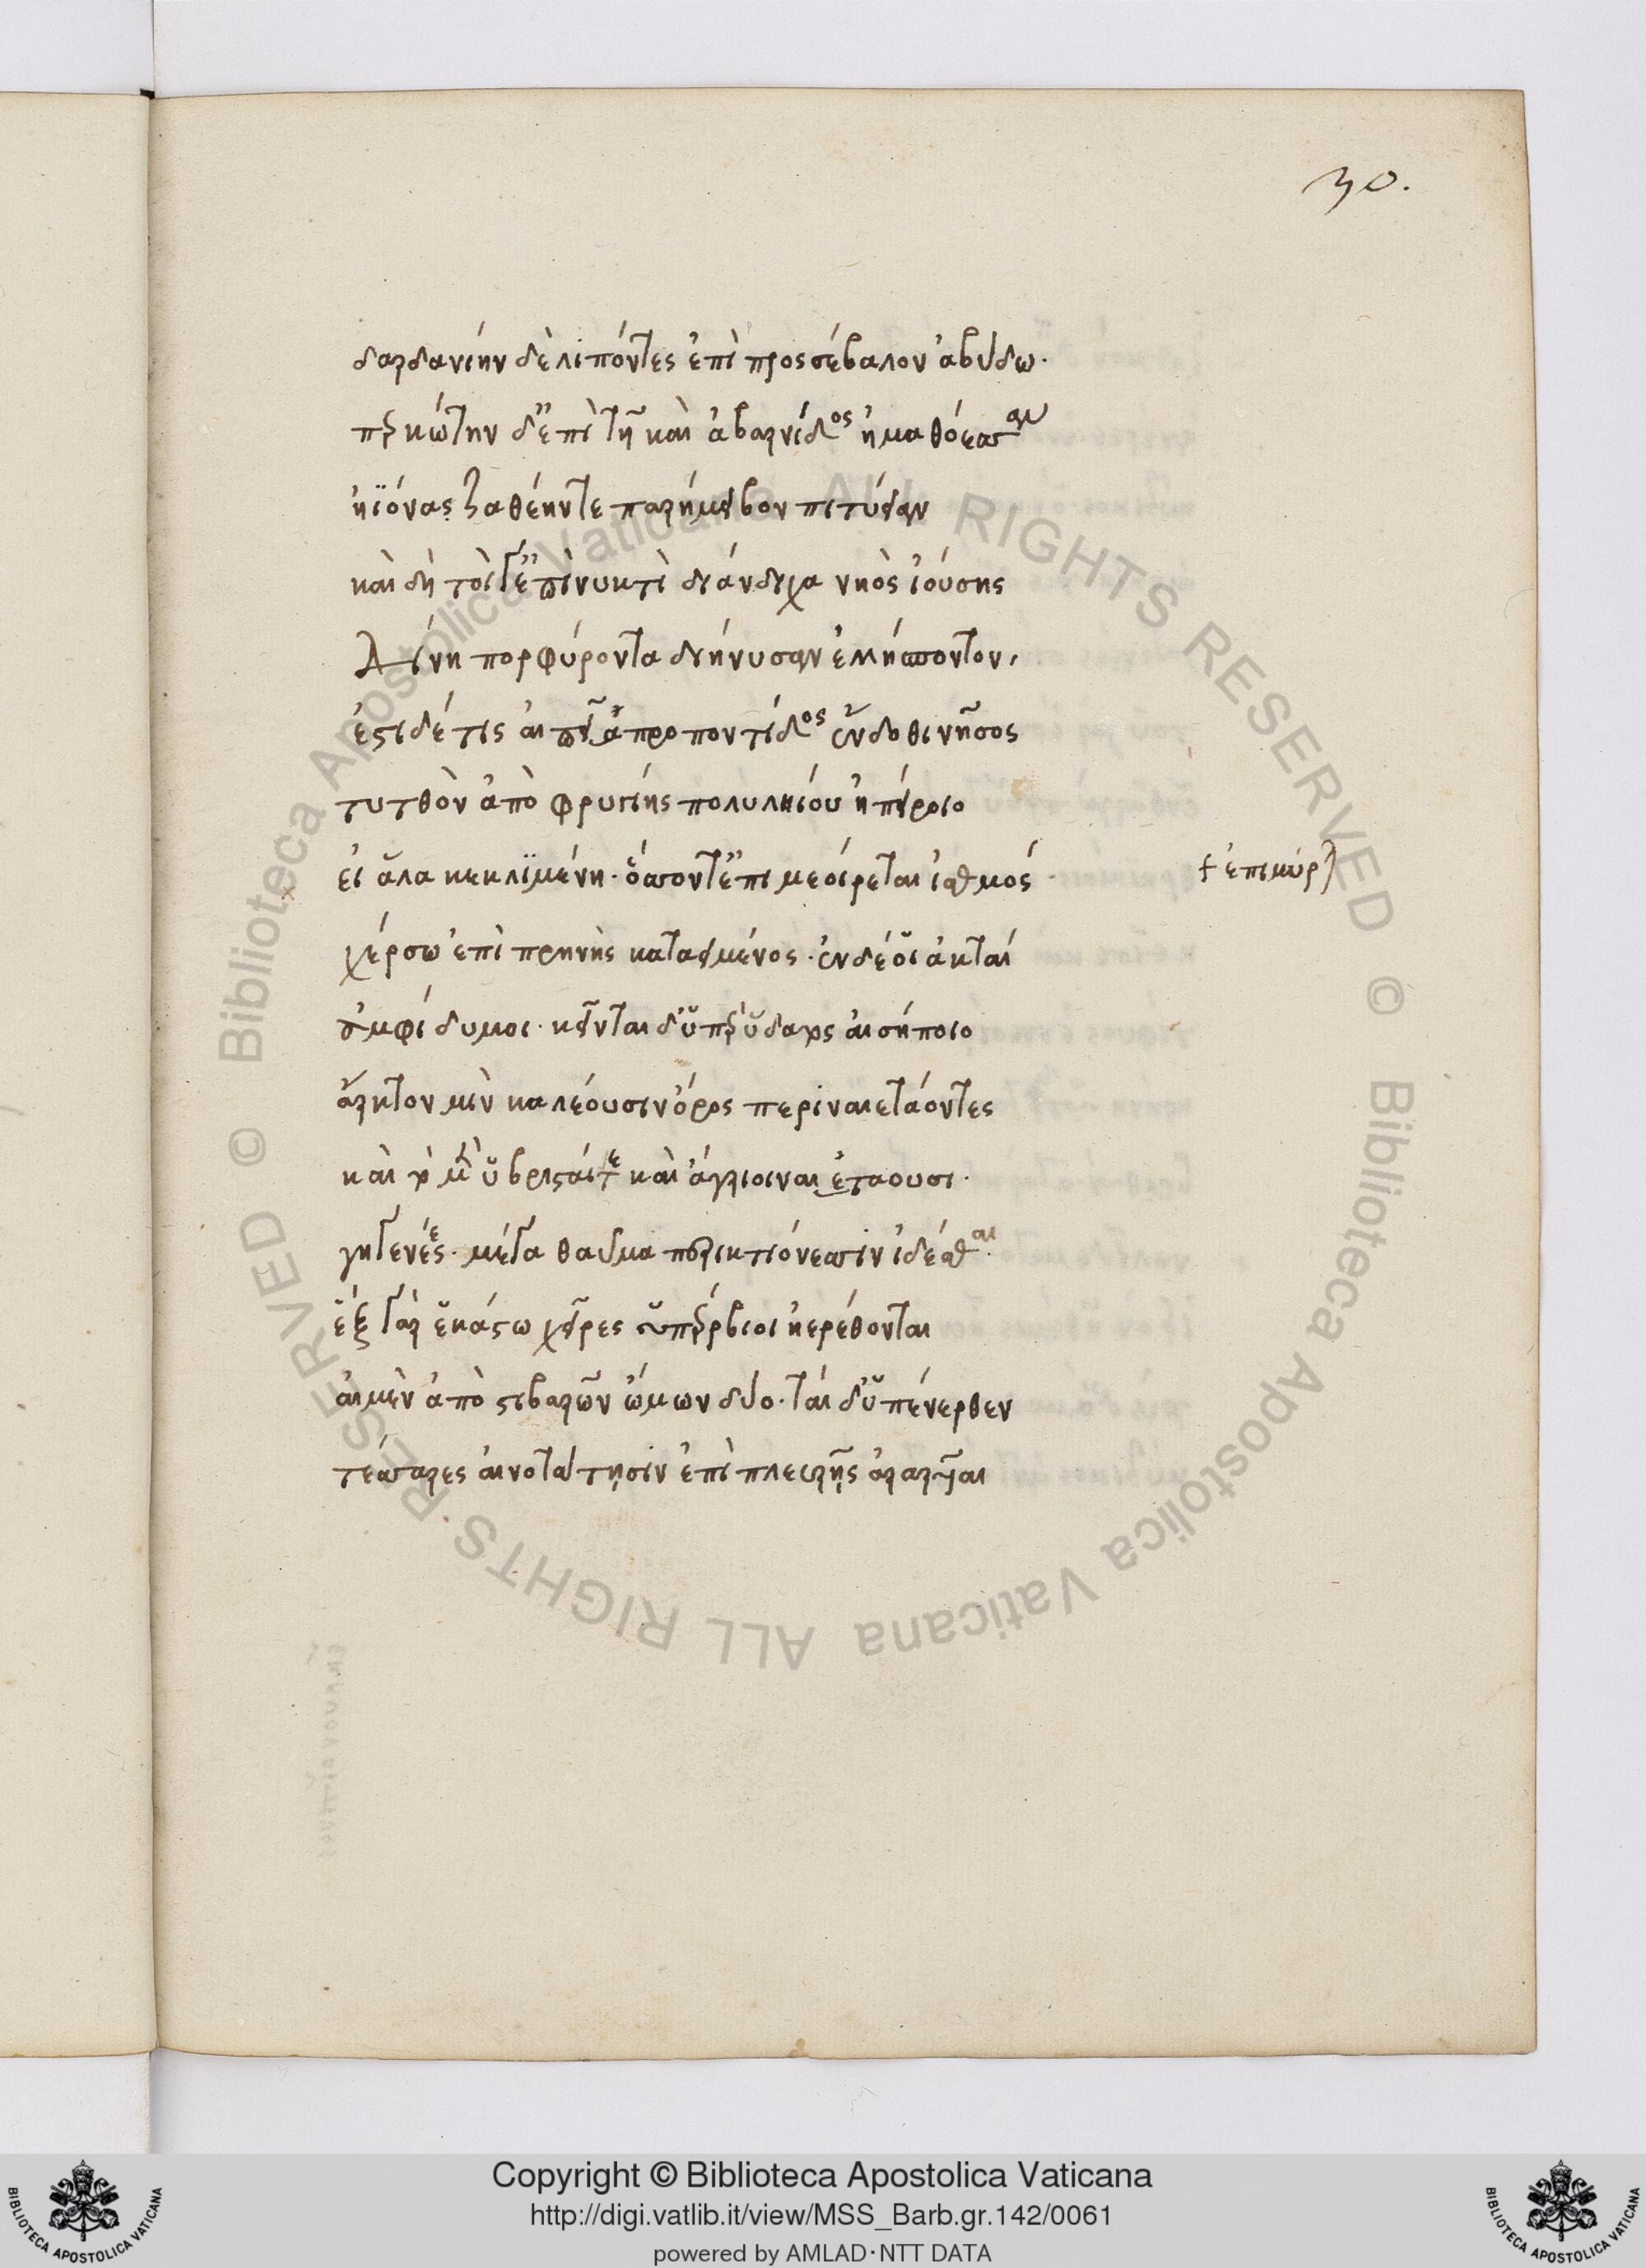 30.
δαρδανίην δὲ λιπόντες ἐπὶ προσσέβαλον ἀβύδω.
περκώτην δ' ἐπὶ τῆ καὶ ἀβαρνίδος ἠμαθόεσσαν
ἠϊόνας ζαθέην τε παρήμειβον πιτύειαν
καὶ δὴ τοίγ' ἐπὶ νυκτὶ διάνδιχα νηὸς ἰούσης
δίνη πορφύροντα διήνυσαν ἑλλήσποντον.
ἔστι δέ τις αἰπεῖα προποντίδος ἔνδοθι νῆσος
τυτθὸν ἀπὸ φρυγίης πολυληίου ἠπείροιο
εἰ ἅλα κεκλϊμένη. ὅσσον τ' ἐπιμε οίρεται ἰσθμός
† ἐπιμύρ
χέρσω ἐπὶ πρηνὴς καταειμένος. ἐν δέ οἱ ἀκταί
ἀμφίδυμοι. κεῖνται δ' ὑπὲρ ὕδατος αἰσήποιο
ἄρκτον μιν καλέουσιν ὄρος περιναιετάοντες
καὶ τὸ μὲν ὑβρισταί τε καὶ ἄγριοι ναιετάουσι.
γηγενέες. μέγα θαῦμα περικτιόνεσσιν ἰδέσθαι.
ἓξ γὰρ ἑκάστω χεῖρες ὑπέρβιοι ἠερέθονται
αἱ μὲν ἀπὸ στιβαρῶν ὤμων δύο. ταὶ δ' ὑπένερθεν
τέσσαρες αἰνοτάτησιν ἐπὶ πλευρῆς ἀραρυῖαι
Copyright © Biblioteca Apostolica Vaticana
http://digi.vatlib.it/view/MSS_Barb.gr.142/0061
powered by AMLAD·NTT DATA
BIBLIOTECA APOSTOLICA VATICANA
BIBLIOTECA APOSTOLICA VATICANA
© Biblioteca Apostolica Vaticana ALL RIGHTS RESERVED
© Biblioteca Apostolica Vaticana ALL RIGHTS RESERVED